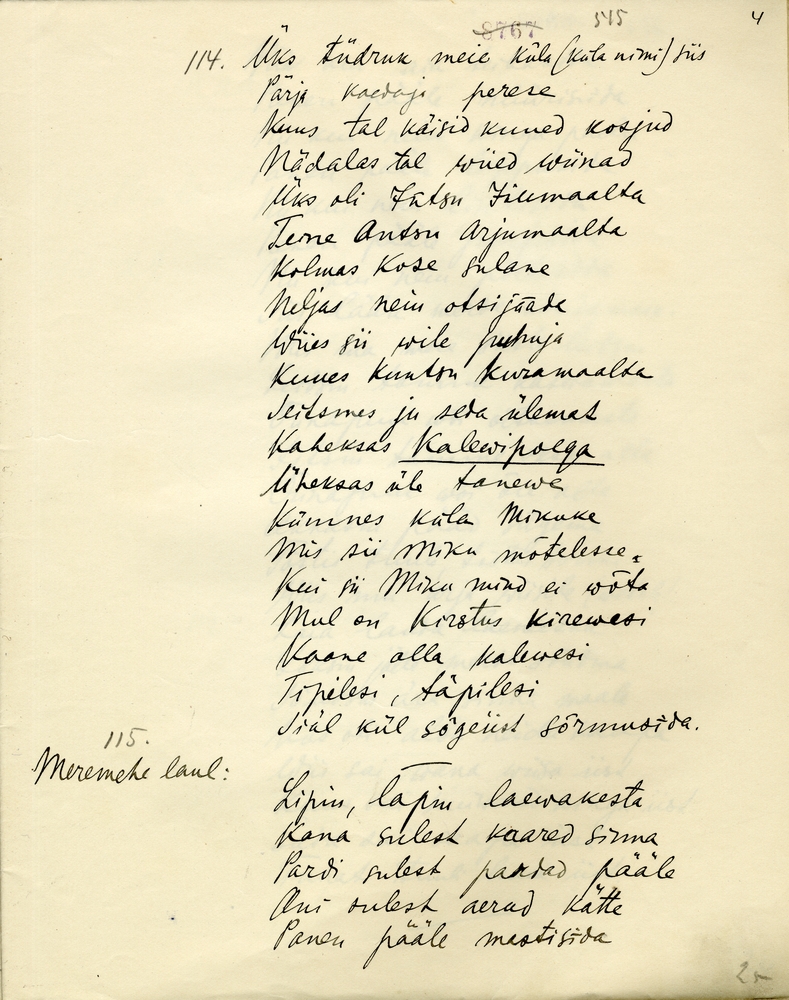 8767 515 4
114. Üks tüdruk meie küla (küla nimi) siis
Pärja kaedaji perese
Kuus tal käisid kuued kosjud
Nädalas tal wiied wiinad
Üks oli Tatsu Iiumaalta
Teine Antsu Arjumaalta
Kolmas Kose sulane
Neljas nein otsijaada
Wiies sii wile puhuja
Kuues Kuntsu Kuramaalta
Seitsmes ju seda ülemat
Kaheksas Kalewipoega
Üheksas üle tanewa
Kümnes küla Mikuke
Mis sii Miku mõtelesse.
Kui sii Miku mind ei wõta
Mul on Kirstus kirewesi
Kaane alla kalewesi
Tipilesi, täpilesi
Siäl kül sõgeiist sõrmusida.
115.
Meremehe laul:
Lipin, lapin laewakesta
Kana sulest kaared sinna
Pardi sulest pardad pääle
Ani sulest aerud kätte
Panen pääle mastisida